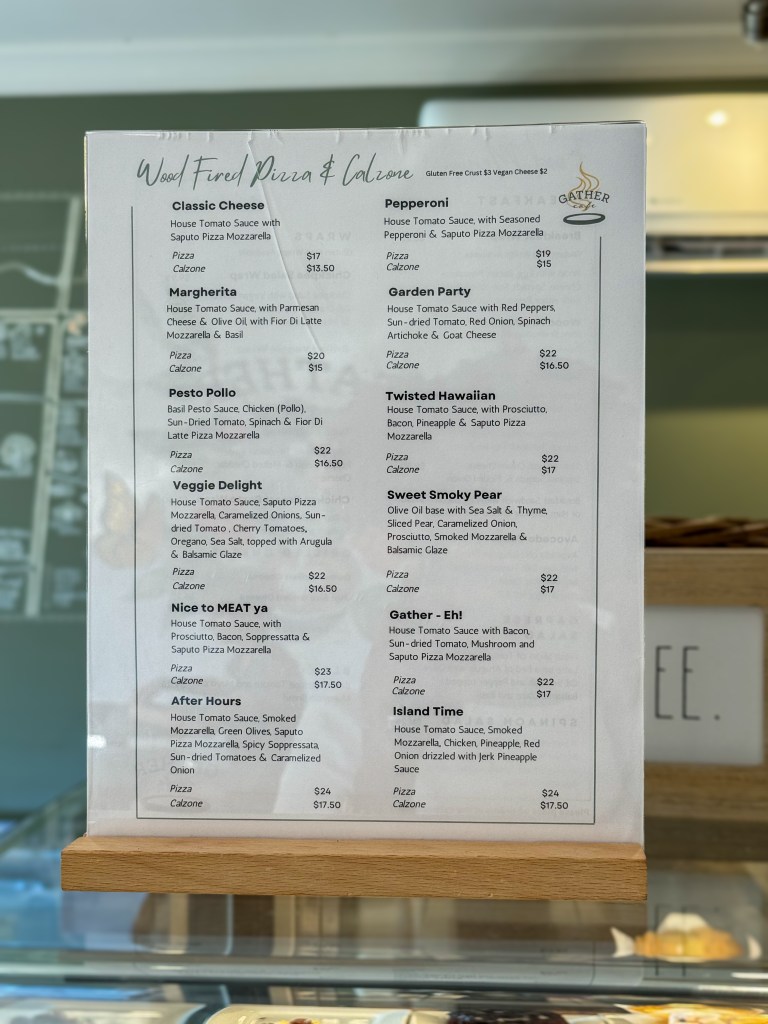 Wood Fired Pizza & Calzone
Gluten Free Crust $3 Vegan Cheese $2
GATHER
cafe
Classic Cheese
House Tomato Sauce with
Saputo Pizza Mozzarella
Pizza $17
Calzone $13.50
Margherita
House Tomato Sauce, with Parmesan
Cheese & Olive Oil, with Fior Di Latte
Mozzarella & Basil
Pizza $20
Calzone $15
Pesto Pollo
Basil Pesto Sauce, Chicken (Pollo),
Sun-Dried Tomato, Spinach & Fior Di
Latte Pizza Mozzarella
Pizza $22
Calzone $16.50
Veggie Delight
House Tomato Sauce, Saputo Pizza
Mozzarella, Caramelized Onions, Sun-
dried Tomato , Cherry Tomatoes,
Oregano, Sea Salt, topped with Arugula
& Balsamic Glaze
Pizza $22
Calzone $16.50
Nice to MEAT ya
House Tomato Sauce, with
Prosciutto, Bacon, Soppressatta &
Saputo Pizza Mozzarella
Pizza $23
Calzone $17.50
After Hours
House Tomato Sauce, Smoked
Mozzarella, Green Olives, Saputo
Pizza Mozzarella, Spicy Soppressata,
Sun-dried Tomatoes & Caramelized
Onion
Pizza $24
Calzone $17.50
Pepperoni
House Tomato Sauce, with Seasoned
Pepperoni & Saputo Pizza Mozzarella
Pizza $19
Calzone $15
Garden Party
House Tomato Sauce with Red Peppers,
Sun-dried Tomato, Red Onion, Spinach
Artichoke & Goat Cheese
Pizza $22
Calzone $16.50
Twisted Hawaiian
House Tomato Sauce, with Prosciutto,
Bacon, Pineapple & Saputo Pizza
Mozzarella
Pizza $22
Calzone $17
Sweet Smoky Pear
Olive Oil base with Sea Salt & Thyme,
Sliced Pear, Caramelized Onion,
Prosciutto, Smoked Mozzarella &
Balsamic Glaze
Pizza $22
Calzone $17
Gather - Eh!
House Tomato Sauce with Bacon,
Sun-dried Tomato, Mushroom and
Saputo Pizza Mozzarella
Pizza $22
Calzone $17
Island Time
House Tomato Sauce, Smoked
Mozzarella, Chicken, Pineapple, Red
Onion drizzled with Jerk Pineapple
Sauce
Pizza $24
Calzone $17.50
EE.